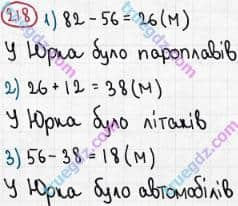 218 1) 82 - 56 = 26 (м)
У Юрка було пароплавів
2) 26 + 12 = 38 (м)
У Юрка було літаків
3) 56 - 38 = 18 (м)
У Юрка було автомобілів